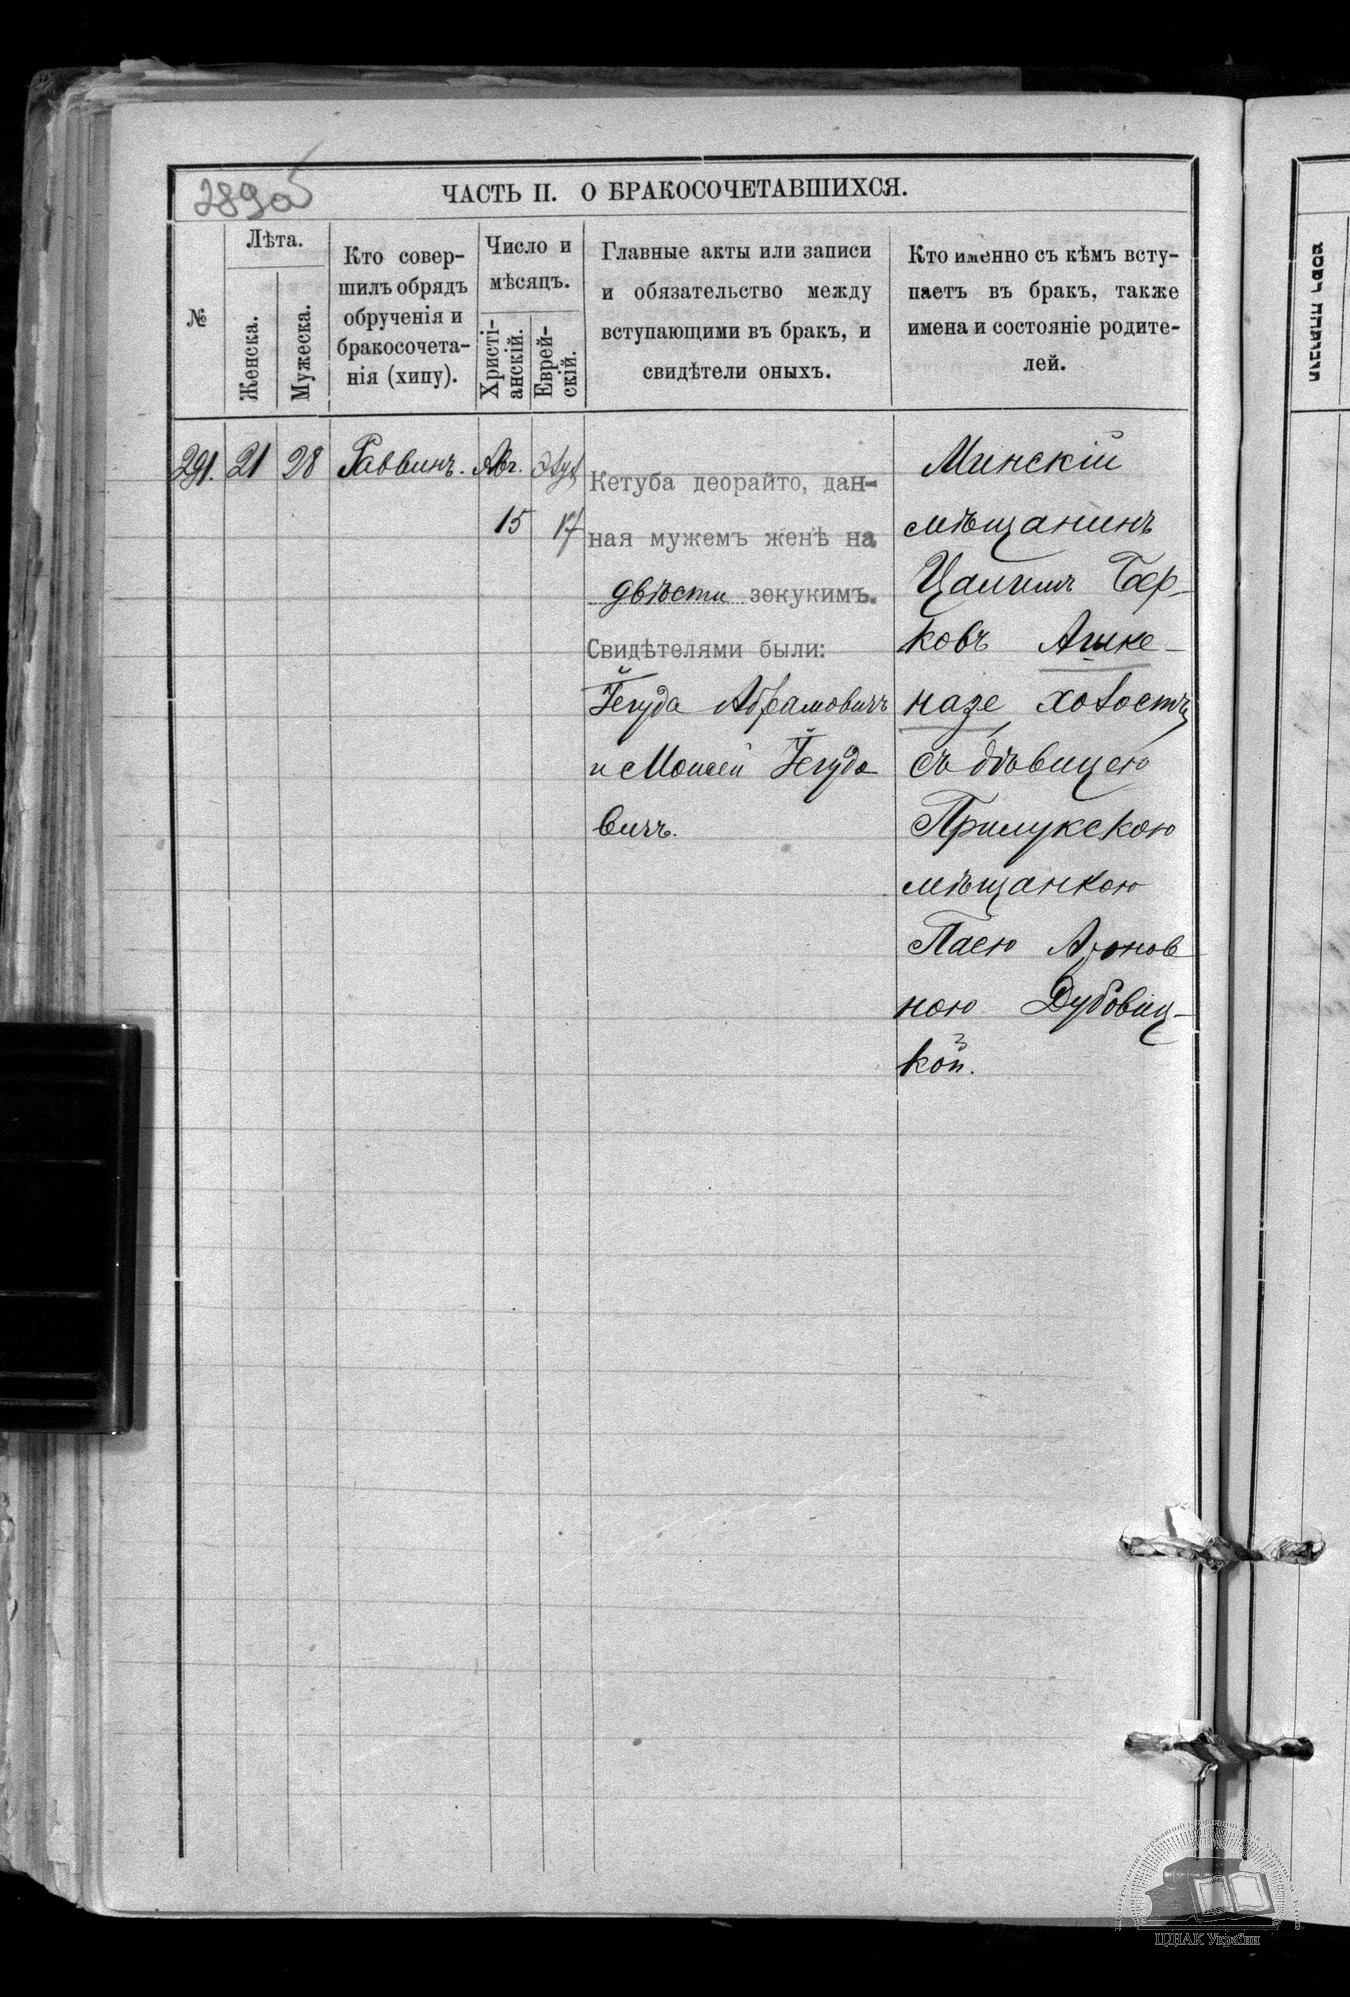 289об
ЧАСТЬ II. О БРАКОСОЧЕТАВШИХСЯ.
№
Лѣта.
Женска.
Мужеска.
Кто совер-
шилъ обрядъ
обрученія и
бракосочета-
нія (хипу).
Число и
мѣсяцъ.
Христі-
анскій.
Еврей-
скій.
Главные акты или записи
и обязательство между
вступающими въ бракъ, и
свидѣтели оныхъ.
Кто именно съ кѣмъ всту-
паетъ въ бракъ, также
имена и состояніе родите-
лей.
291. 21 28 Раввинъ. Авг.
15 17
Кетуба деорайто, дан-
ная мужемъ женѣ на
двѣсти зекукимъ.
Свидѣтелями были:
Іегуда Абрамовичъ
и Моисей Іегудо
вичъ.
Минскій
мѣщанинъ
Цалимъ Бер-
ковъ Ашке-
назе, холостъ,
съ дѣвицею
Прилукскою
мѣщанкою
Пасею Аронов
ною Дубовиц-
кой.
ЦДІАК України